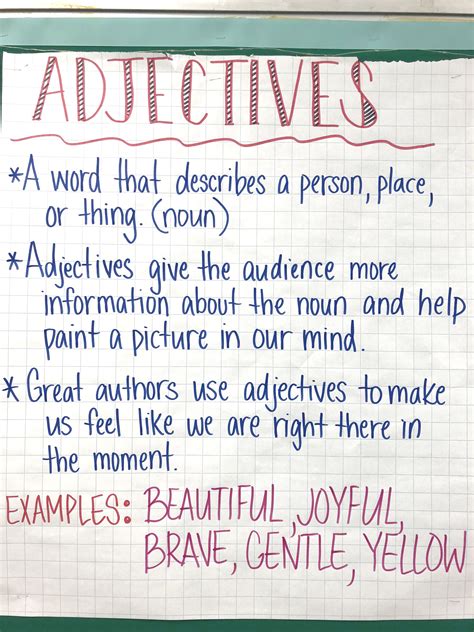 ADJECTIVES
*A word that describes a person, place,
or thing. (noun)
*Adjectives give the audience more
information about the noun and help
paint a picture in our mind.
* Great authors use adjectives to make
us feel like we are right there in
the moment.
EXAMPLES: BEAUTIFUL, JOYFUL,
BRAVE, GENTLE, YELLOW